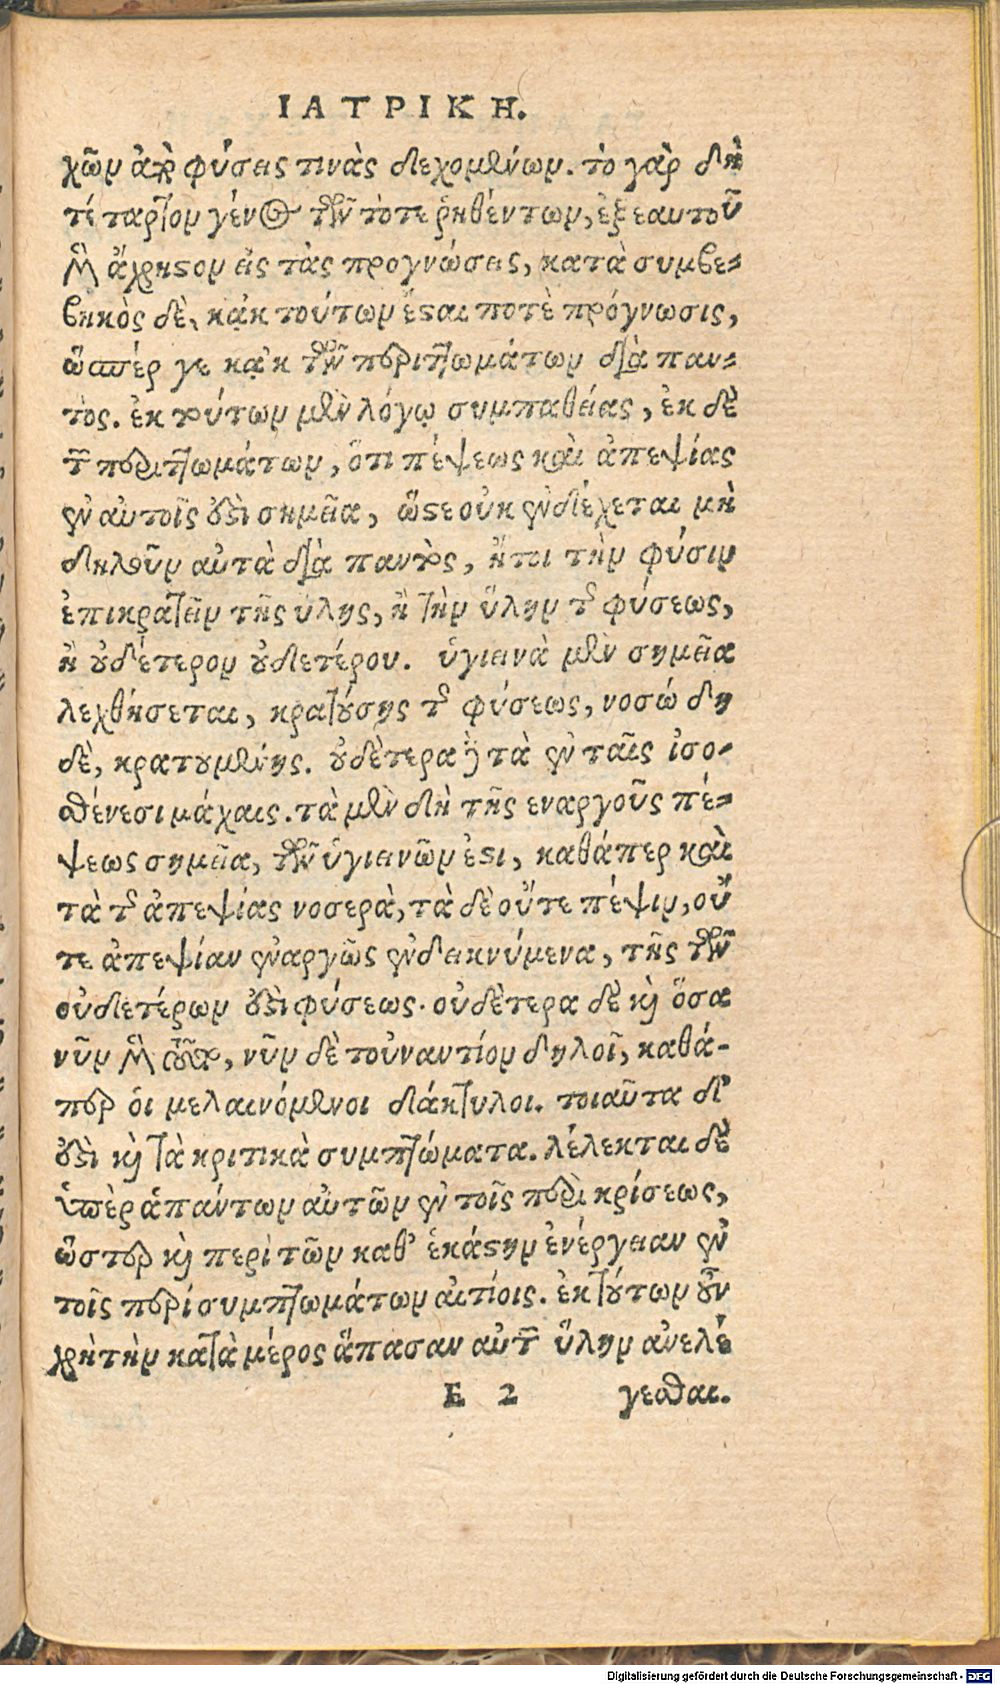 ΙΑΤΡΙΚΗ.
χῶν ἀέρ φύσεις τινὰς δεχομένων. τὸ γὰρ δὴ
τέταρτον γένος τῶν τότε ῥηθέντων, ἐξ εαυτοῦ
μὲν ἄχρηστον εἰς τὰς προγνώσεις, κατὰ συμβε-
βηκὸς δὲ, κᾀκ τούτων ἔσαι ποτὲ πρόγνωσις,
ὥσπέρ γε κᾀκ τῶν περιττωμάτων διὰ παν-
τὸς. ἐκ τούτων μὲν λόγῳ συμπαθείας, ἐκ δὲ
τῶν περιττωμάτων, ὅτι πέψεως καὶ ἀπεψίας
ἐν αὐτοῖς ὅξι σημεῖα, ὥστε οὐκ ἐνδέχεται μὴ
δηλοῦν αὐτὰ διὰ παντὸς, ἤτοι τὴν φύσιν
ἐπικρατεῖν τῆς ὕλης, ἢ τὴν ὕλην τῆς φύσεως,
ἢ οὐδέτερον οὐδετέρου. ὑγιεινὰ μὲν σημεῖα
λεχθήσεται, κρατούσης τῆς φύσεως, νοσώδη
δὲ, κρατουμένης. οὐδέτερα δὲ τὰ ἐν ταῖς ἰσο-
σθένεσι μάχαις. τὰ μὲν δὴ τῆς εναργοῦς πέ-
ψεως σημεῖα, τῶν ὑγιεινῶν ἐστι, καθάπερ καὶ
τὰ τῆς ἀπεψίας νοσερὰ, τὰ δὲ οὔτε πέψιν, οὔ
τε ἀπεψίαν ἐναργῶς ἐνδεικνύμενα, τῆς τῶν
οὐδετέρων ἐστὶ φύσεως. οὐδέτερα δὲ καὶ ὅσα
νῦν μὲν , νῦν δὲ τοὐναντίον δηλοῖ, καθά-
περ ὁι μελαινόμενοι δάκτυλοι. τοιαῦτα δ'
ἐστὶ καὶ τὰ κριτικὰ συμπτώματα. λέλεκται δὲ
ὑπὲρ ἁπάντων αὐτῶν ἐν τοῖς περὶ κρίσεως,
ὥσπερ καὶ περὶ τῶν καθ' ἑκάστην ἐνέργειαν ἐν
τοῖς περί συμπτωμάτων αἰτίοις. ἐκ τούτων οὖν
χρὴ τὴν κατὰ μέρος ἅπασαν αὐτῶν ὕλην ἀνελέ
Ε 2 γεσθαι.
Digitalisierung gefördert durch die Deutsche Forschungsgemeinschaft - DFG